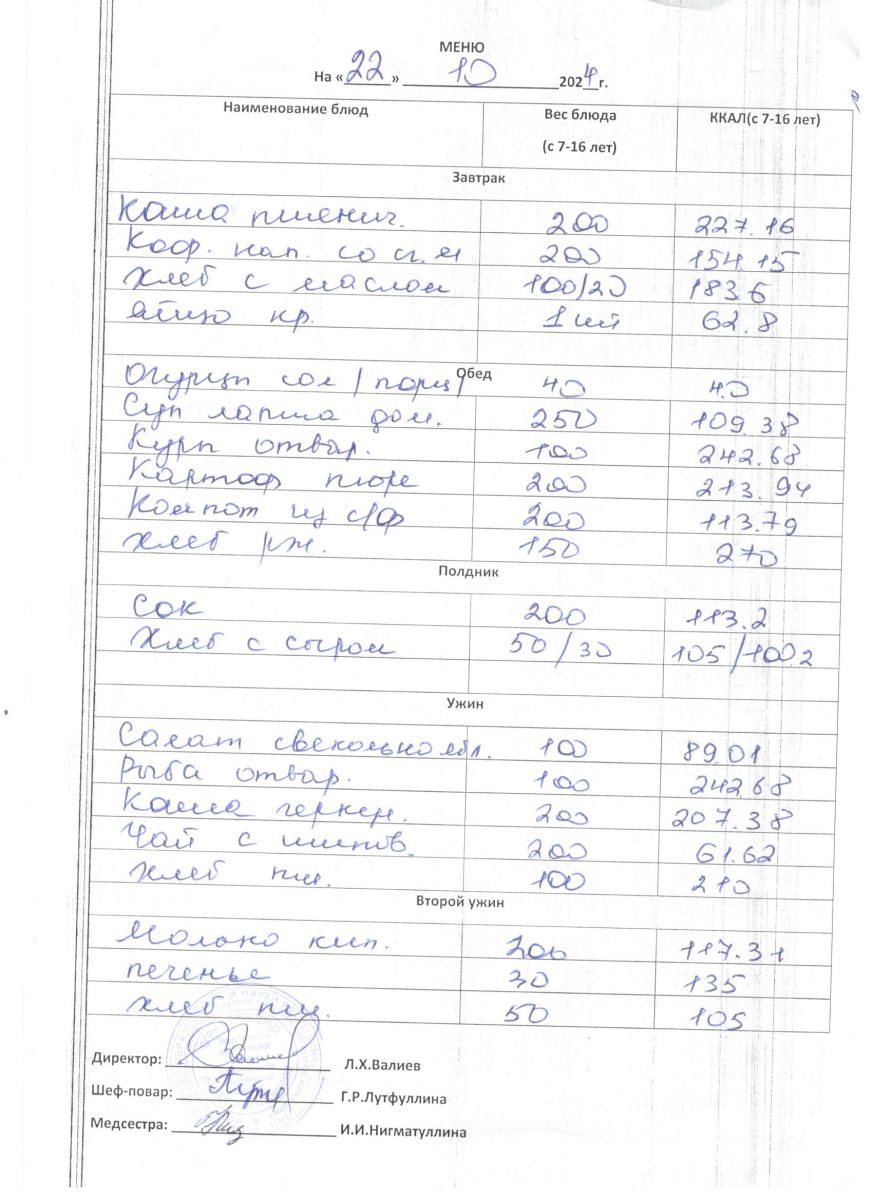 МЕНЮ
На «22» 10 2024 г.
Наименование блюд Вес блюда (с 7-16 лет) ККАЛ(с 7-16 лет)
Завтрак
Каша пшенич. 200 227.16
Коф. нап. со сг. м 200 154.15
Хлеб с маслом 100/20 183.6
яйцо кр. 1 шт 62.8
Обед
Огурцы сол /порц/ 40 4.0
Суп лапша дом. 250 109.38
Куры отвар. 100 242.68
Картоф пюре 200 213.94
Компот из с/ф 200 113.79
Хлеб рж. 150 270
Полдник
Сок 200 113.2
Хлеб с сыром 50/30 105/100 2
Ужин
Салат свекольно ябл. 100 89.01
Рыба отвар. 100 242.68
Каша геркул. 200 207.38
Чай с шипов. 200 61.62
Хлеб пш. 100 210
Второй ужин
Молоко кип. 200 117.31
печенье 30 135
хлеб пш. 50 105
Директор: Л.Х.Валиев
Шеф-повар: Г.Р.Лутфуллина
Медсестра: И.И.Нигматуллина